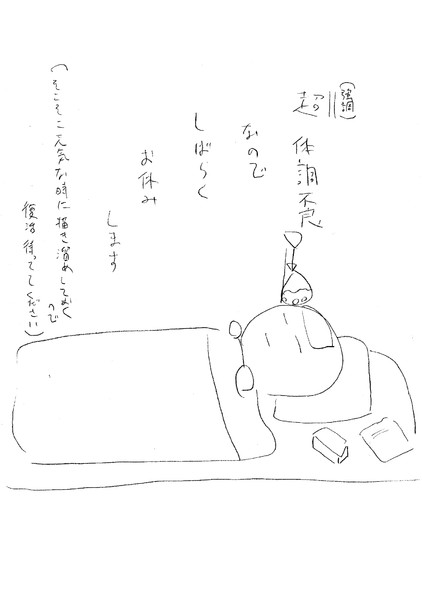 超 体調不良
（強調）
なので
しばらく
お休み
します
（そこそこ元気な時に描き溜めしておくので
復活待っててください）